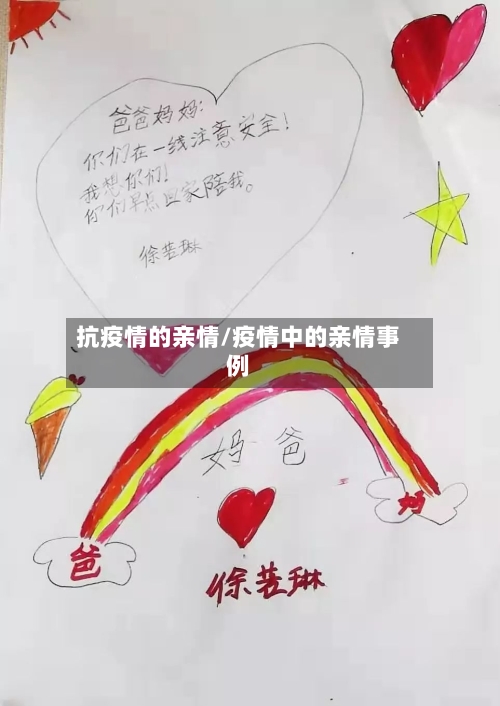 爸爸妈妈:
你们在一线注意安全!
我想你们!
你们早点回家陪我。
徐芸琳
抗疫情的亲情/疫情中的亲情事
例
妈 爸
爸
妈
徐芸琳